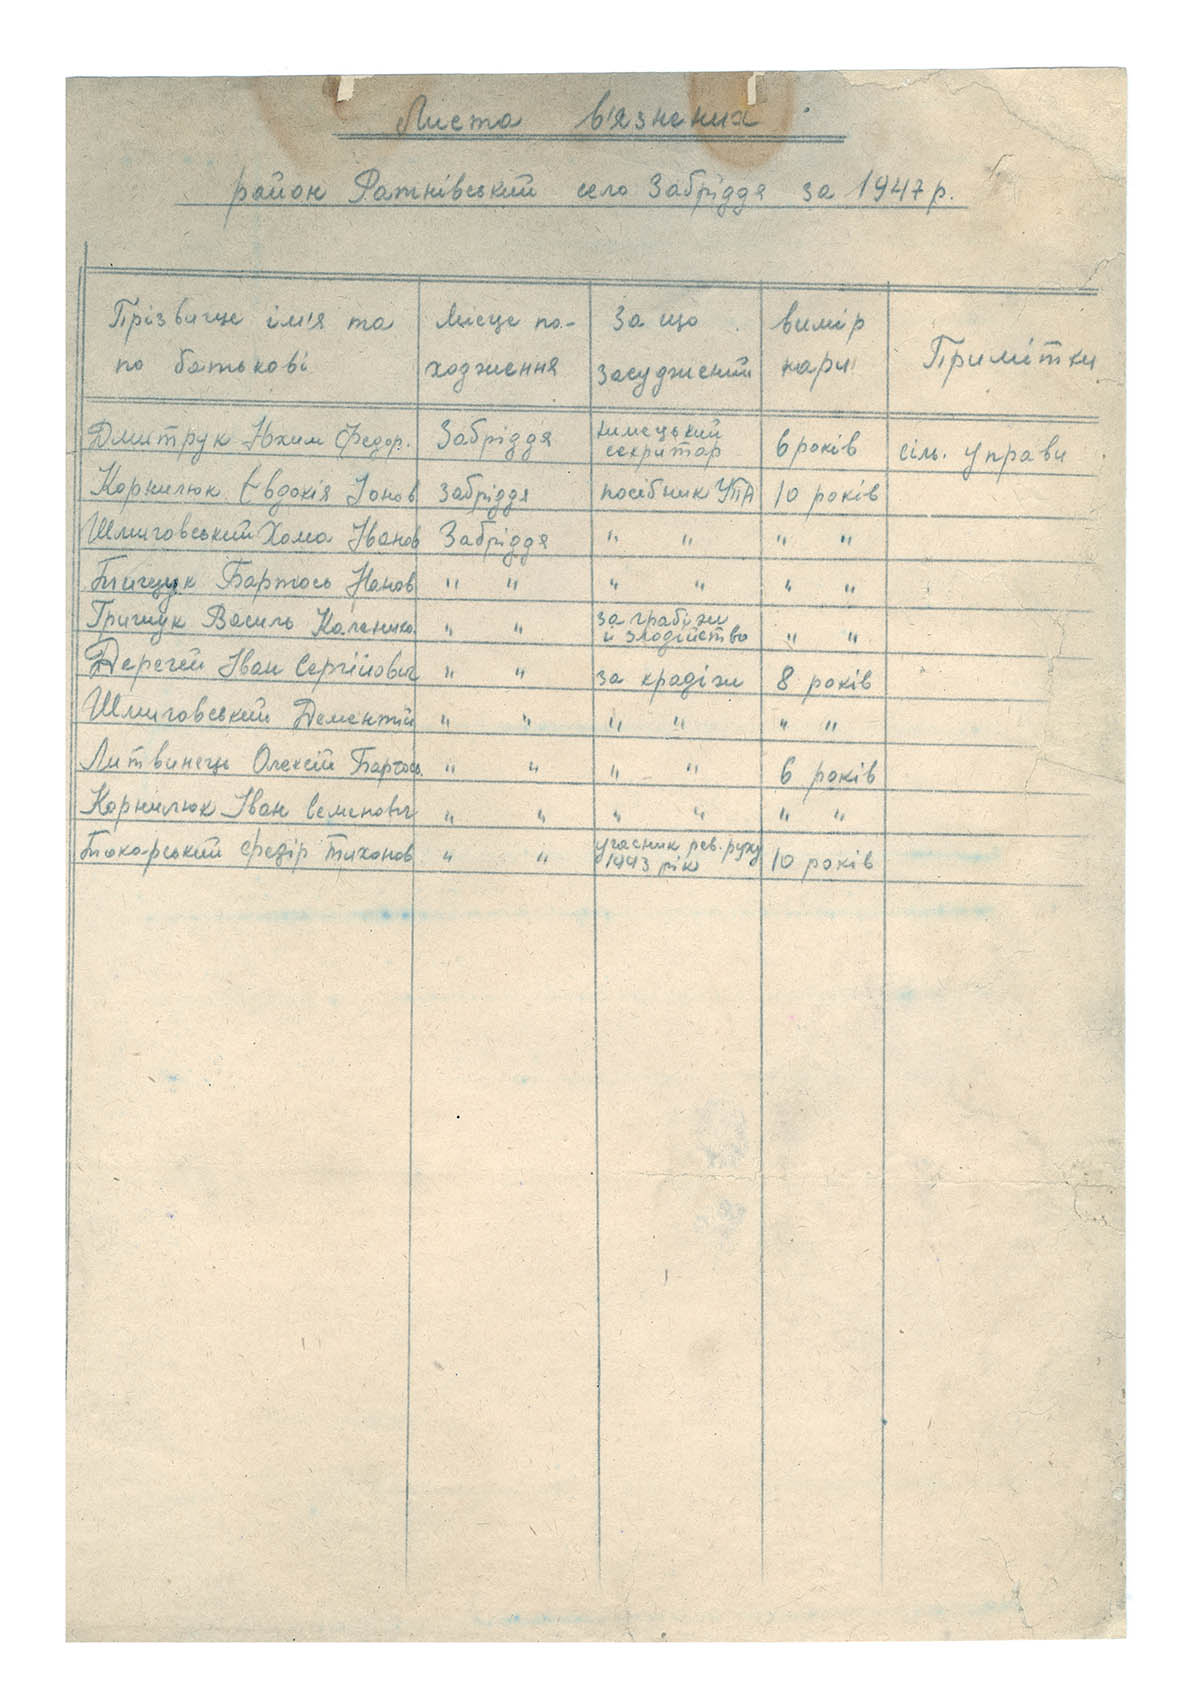 Листа в'язнених
район Ратнівський село Забріддя за 1947 р.
Прізвище ім'я та по батькові Місце походження За що засуджений вимір кари Примітки
Дмитрук Юхим Федор. Забріддя нимецький секритар 6 років сіль. управи
Корнилюк Євдокія Іонов Забріддя посібник УПА 10 років
Шмиговський Хома Іванов Забріддя " " " "
Тищук Бартось " " " " " "
Грищук Василь Каленико. " " за грабіжи й злодійство " "
Дерегей Іван Сергійович " " за крадіжи 8 років
Шмиговський Дементій " " " " " "
Литвинець Олексій Бартось. " " " " 6 років
Корнилюк Іван Семенович " " " " " "
Токарський Федір Тихонов " " учасник рев. руху 1943 рік 10 років